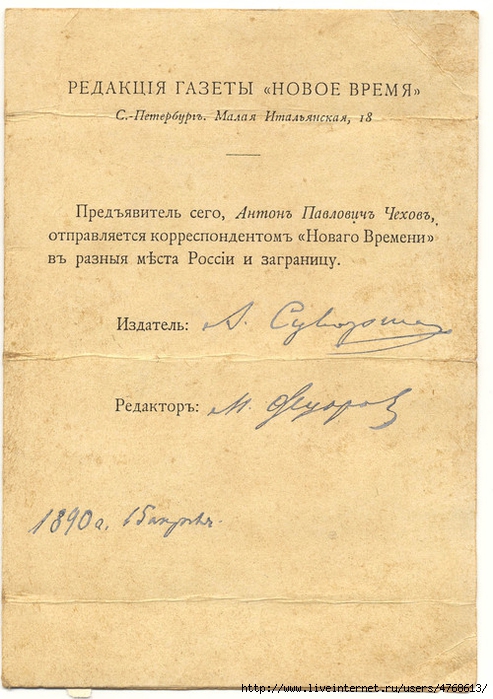 РЕДАКЦІЯ ГАЗЕТЫ «НОВОЕ ВРЕМЯ»
С.-Петербургъ. Малая Итальянская, 18
Предъявитель сего, Антонъ Павловичъ Чеховъ,
отправляется корреспондентомъ «Новаго Времени»
въ разныя мѣста Россіи и заграницу.
Издатель: А. Суворинъ
Редакторъ: М. Ѳедоровъ
1890 г. 15 апрѣля.
http://www.liveinternet.ru/users/4760613/